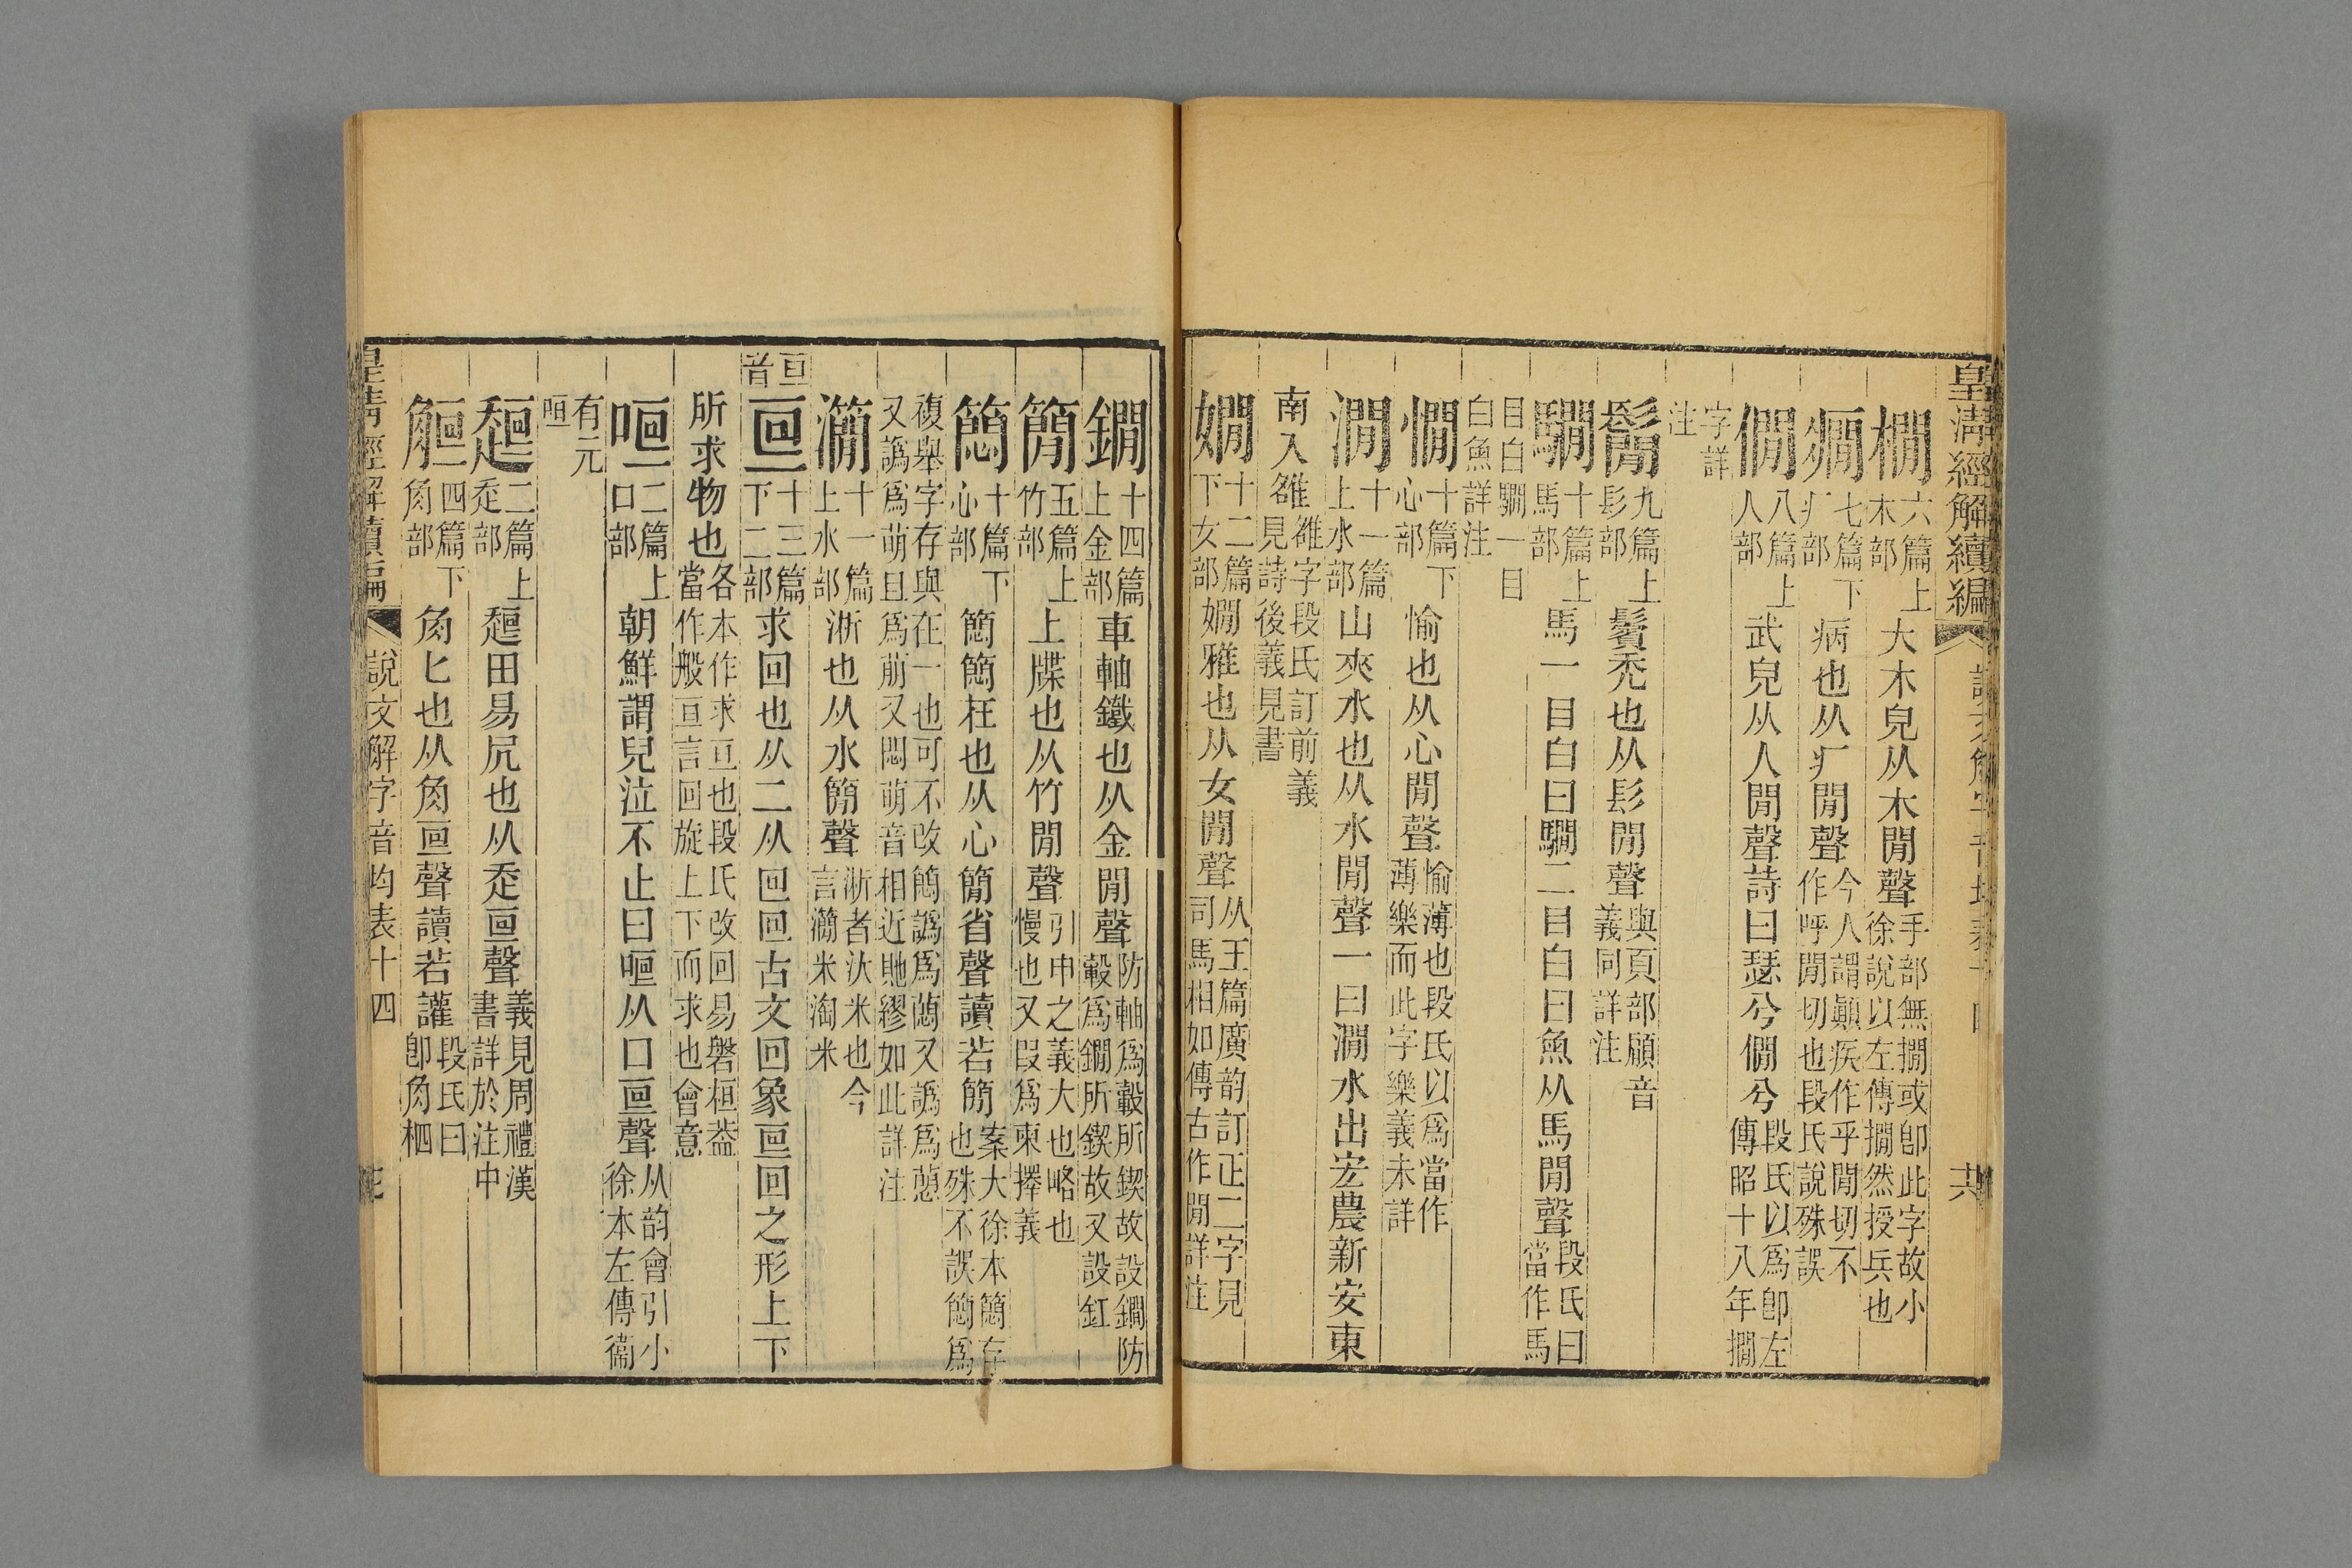 皇淸經解續編
橺六篇上木部大木皃从木閒聲手部無撊或卽此字故小徐說以左傳撊然授兵也
癎七篇下疒部病也从疒閒聲今人謂顚疾作乎閒切不作呼閒切也段氏說殊誤
僩八篇上人部武皃从人閒聲詩曰瑟兮僩兮段氏以爲卽左傳昭十八年撊
字詳注
鬜九篇上髟部鬢禿也从髟閒聲與頁部顅音義同詳注
騆十篇上馬部馬一目白曰騆二目白曰魚从馬閒聲段氏曰當作馬
目白騆一目白魚詳注
憪十篇下心部愉也从心閒聲愉薄也段氏以爲當作薄樂而此字樂義未詳
澗十一篇上水部山夾水也从水閒聲一曰澗水出宏農新安東
南入雒雒字段氏訂前義見詩後義見書
嫺十二篇下女部嫺雅也从女閒聲从王篇廣韵訂正二字見司馬相如傳古作閒詳注
鐗十四篇上金部車軸鐵也从金閒聲防軸爲轂所鍥故設鐗防轂爲鐗所鍥故又設釭
簡五篇上竹部上牒也从竹閒聲引申之義大也略也慢也又叚爲柬擇義
𥳑十篇下心部𥳑𥳑在也从心簡省聲讀若簡案大徐本𥳑存也殊不誤𥳑爲
複舉字存與在一也可不改𥳑譌爲蕑又譌爲𦼬又譌爲萌且爲萠又悶萌音相近貤繆如此詳注
灡十一篇上水部淅也从水簡聲淅者汏米也今言灡米淘米
亘音
亘十三篇下二部求回也从二从囘囘古文回象亘回之形上下
所求物也各本作求亘也段氏改回易磐桓葢當作般亘言回旋上下而求也會意
咺二篇上口部朝鮮謂兒泣不止曰咺从口亘聲从韵會引小徐本左傳衞
有元咺
趄二篇上走部趄田易凥也从走亘聲義見周禮漢書詳於注中
觛四篇下角部角匕也从角亘聲讀若讙段氏曰卽角柶
皇淸經解續編 說文解字音均表十四